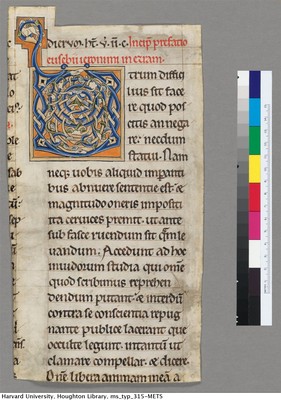 dicit vor. hr̄. v̄. ii. c. Incip̄ prefatio
eusebii ieronimi in ezram.
trum diffici
lius sit face
re quod pos
citis an nega
re: necdum
statui. Nam
neq; uobis aliquid impanti
bus abnuere sententie est: &
magnitudo oneris impositi
ita ceruices premit. ut ante
sub fasce ruendum sit qm̄ le
uandum. Accedunt ad hoc
inuidorum studia qui om̄e
quod scribimus reprehen
dendum putant: & interdū
contra se conscientia repug
nante publice lacerant que
occulte legunt. intantū ut
clamare compellar & dicere.
Dn̄e libera animam meā a
Harvard University, Houghton Library, ms_typ_315-METS